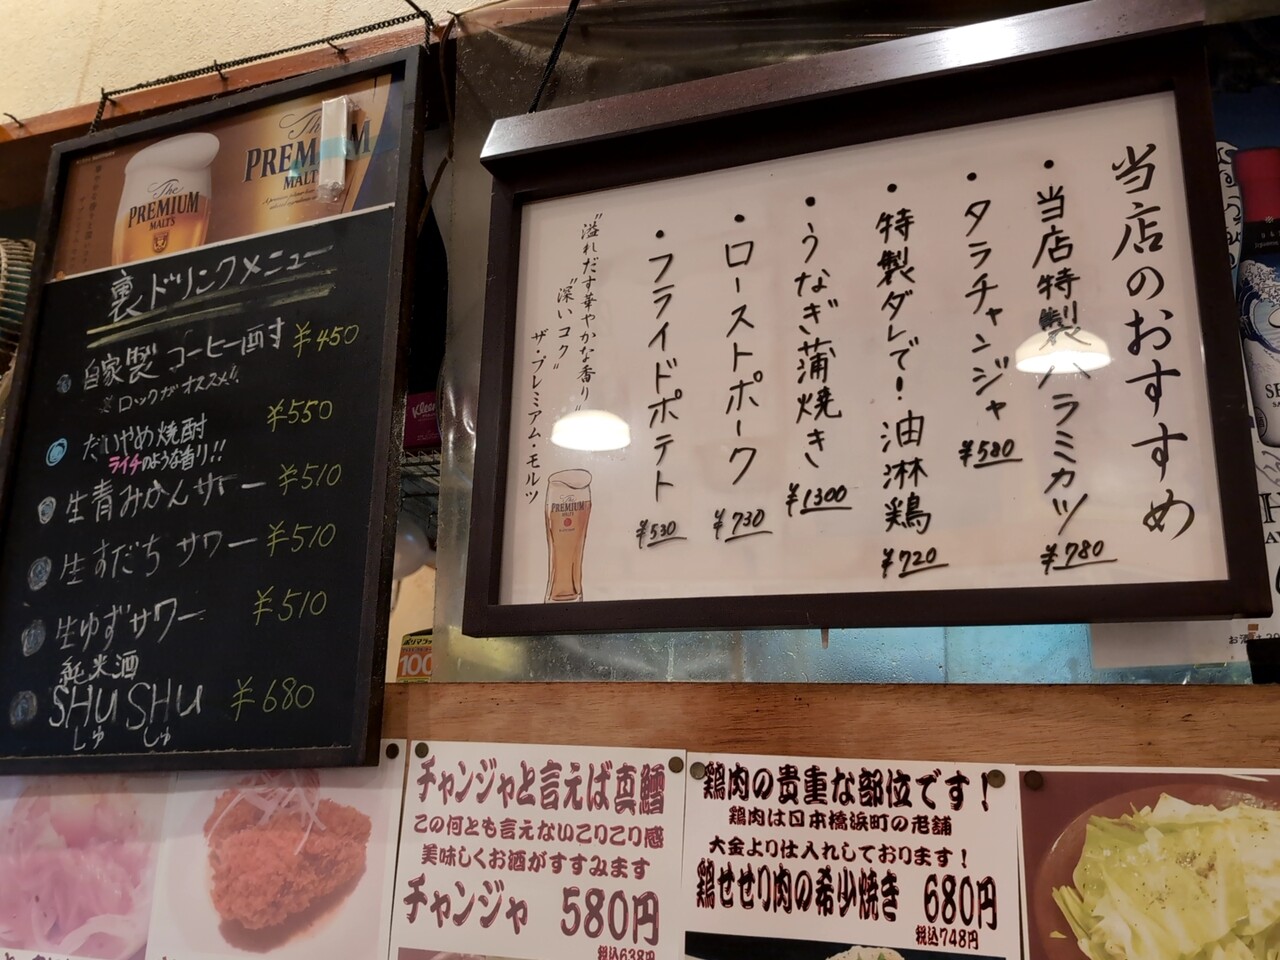 The
PREMIUM
MALT'S
The
PREMIUM
MALT'S
裏ドリンクメニュー
自家製コーヒー酎 ¥450
ロックがオススメ!!
だいやめ焼酎 ¥550
ライチのような香り!!
生青みかんサワー ¥510
生すだちサワー ¥510
生ゆずサワー ¥510
純米酒
SHUSHU ¥680
しゅ しゅ
当店のおすすめ
・当店特製ハラミカツ ¥780
・タラチャンジャ ¥580
・特製ダレで!油淋鶏 ¥720
・うなぎ蒲焼き ¥1300
・ローストポーク ¥730
・フライドポテト ¥530
"溢れだす華やかな香り"
"深いコク"
ザ・プレミアム・モルツ
PREMIUM
チャンジャと言えば真鱈
この何とも言えないこりこり感
美味しくお酒がすすみます
チャンジャ 580円
税込638円
鶏肉の貴重な部位です!
鶏肉は日本橋浜町の老舗
大金より仕入れしております!
鶏せせり肉の希少焼き 680円
税込748円
100